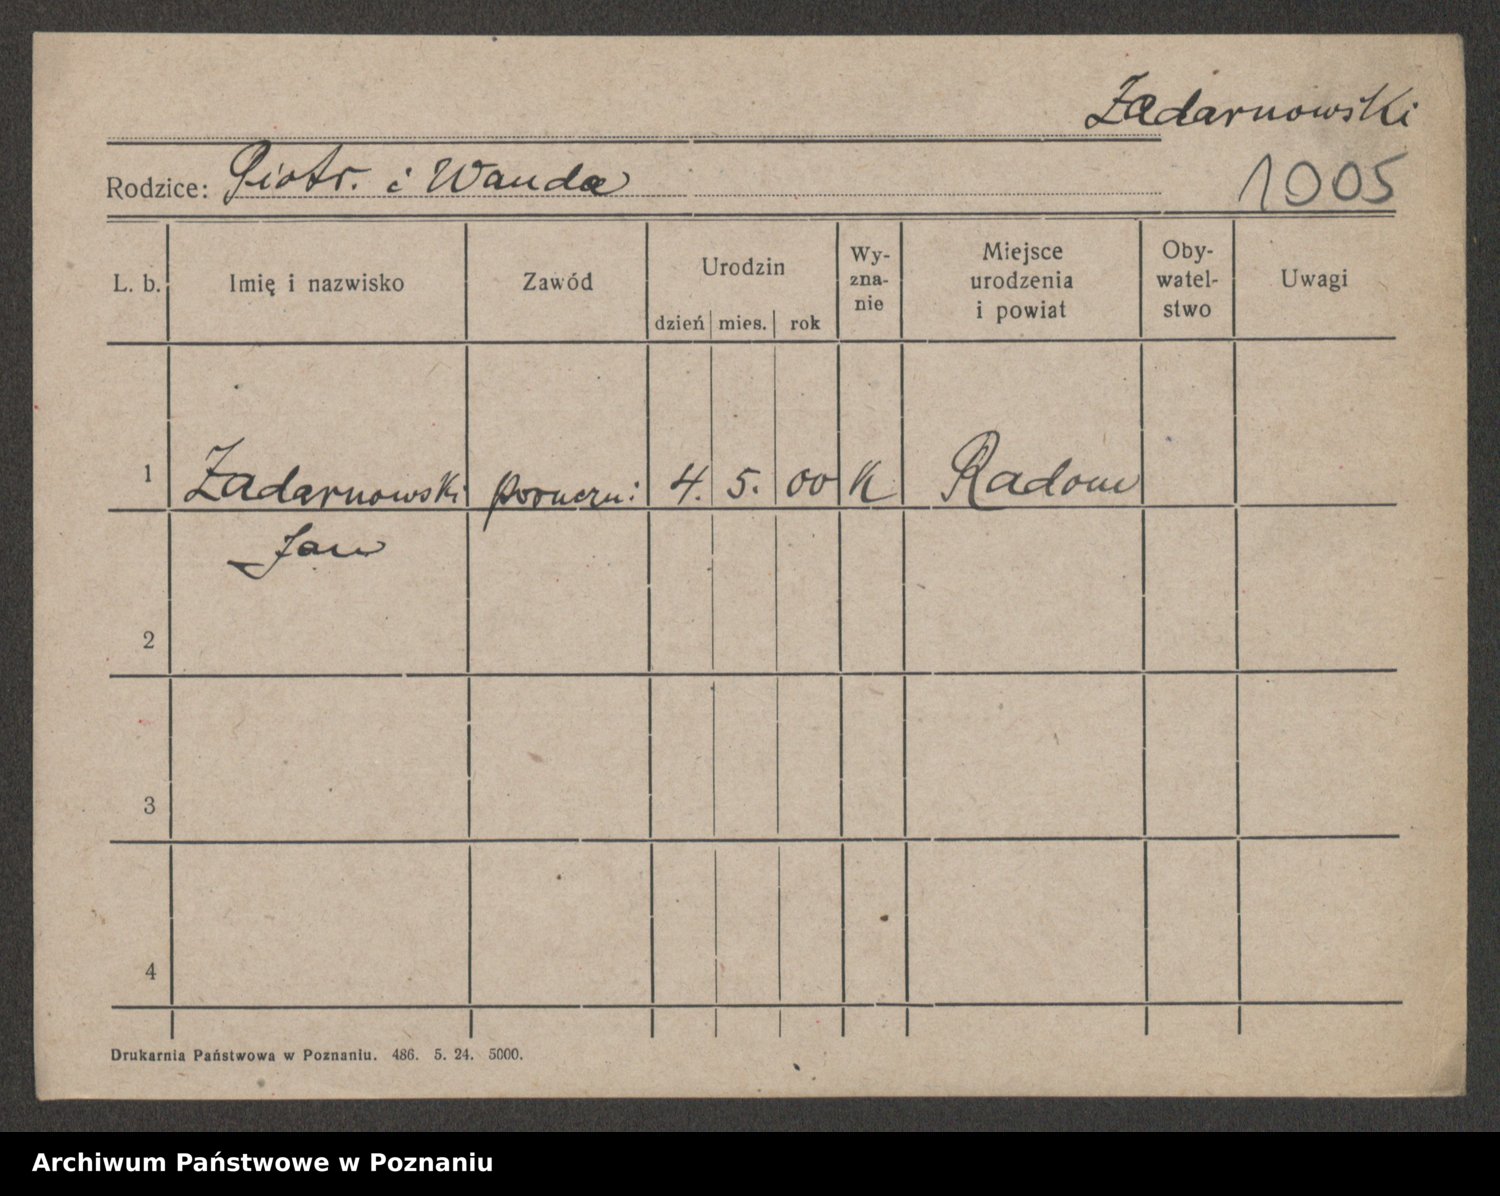 Żadarnowski
Rodzice: Piotr. i Wanda
1005
L. b. Imię i nazwisko Zawód Urodzin dzień mies. rok Wy-zna-nie Miejsce urodzenia i powiat Oby-watel-stwo Uwagi
1 Żadarnowski 4. 5. 00 K Radom
Jan
2
3
4
Drukarnia Państwowa w Poznaniu. 486. 5. 24. 5000.
Archiwum Państwowe w Poznaniu